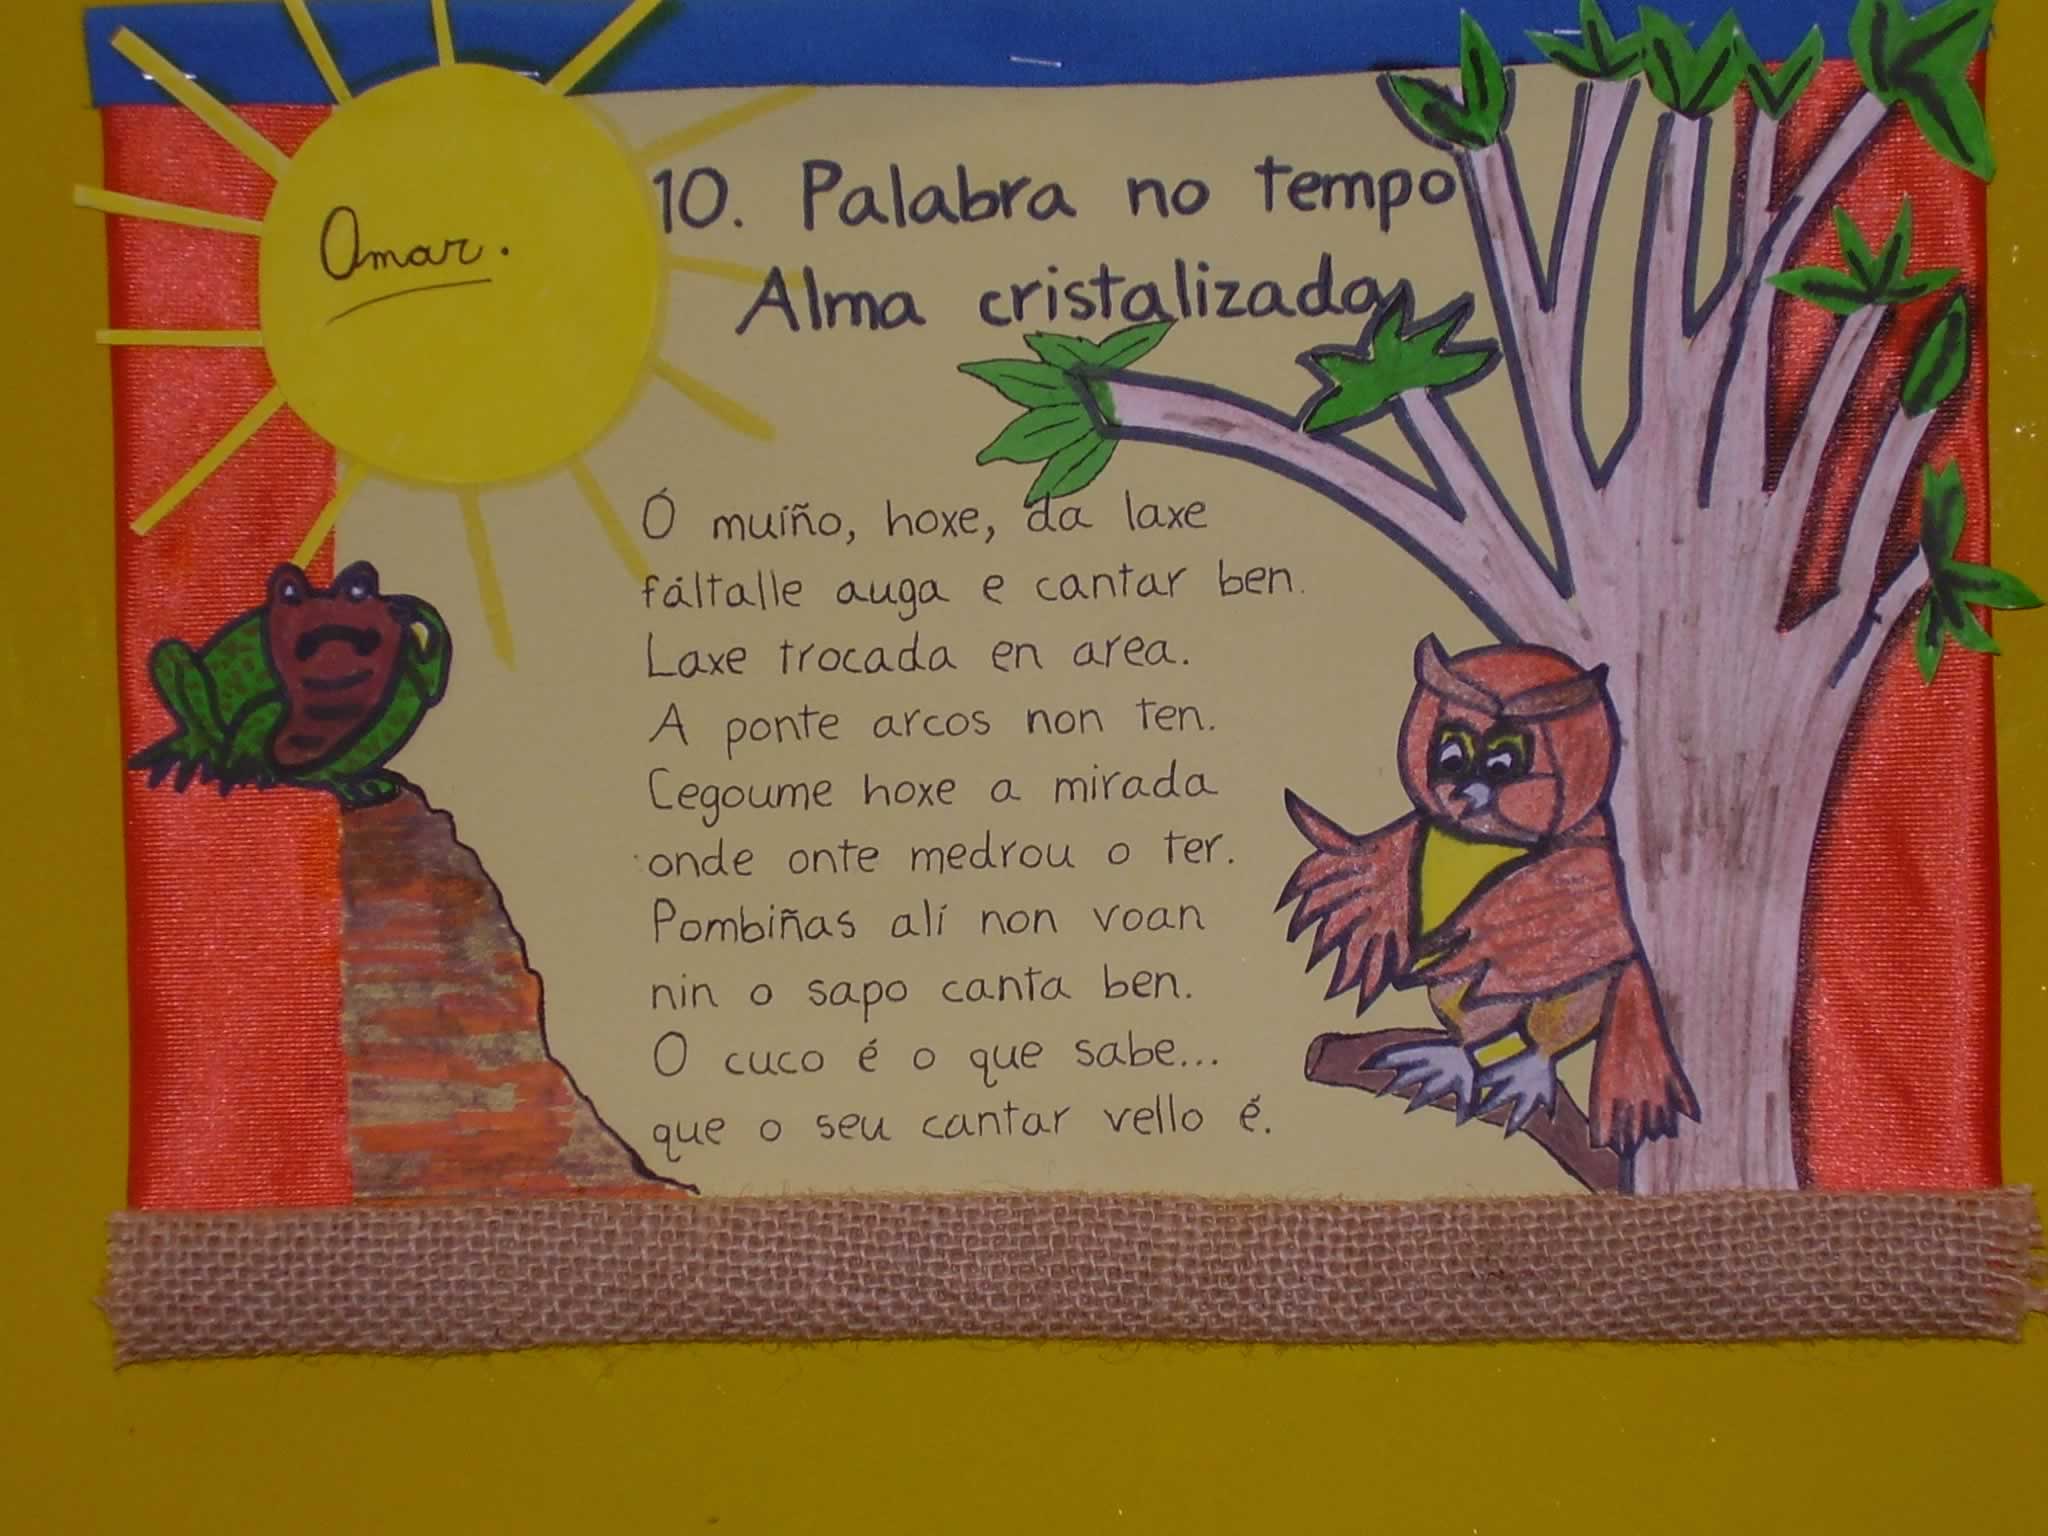 Omar.
10. Palabra no tempo
Alma cristalizada
Ó muíño, hoxe, da laxe
fáltalle auga e cantar ben.
Laxe trocada en area.
A ponte arcos non ten.
Cegoume hoxe a mirada
onde onte medrou o ter.
Pombiñas alí non voan
nin o sapo canta ben.
O cuco é o que sabe...
que o seu cantar vello é.